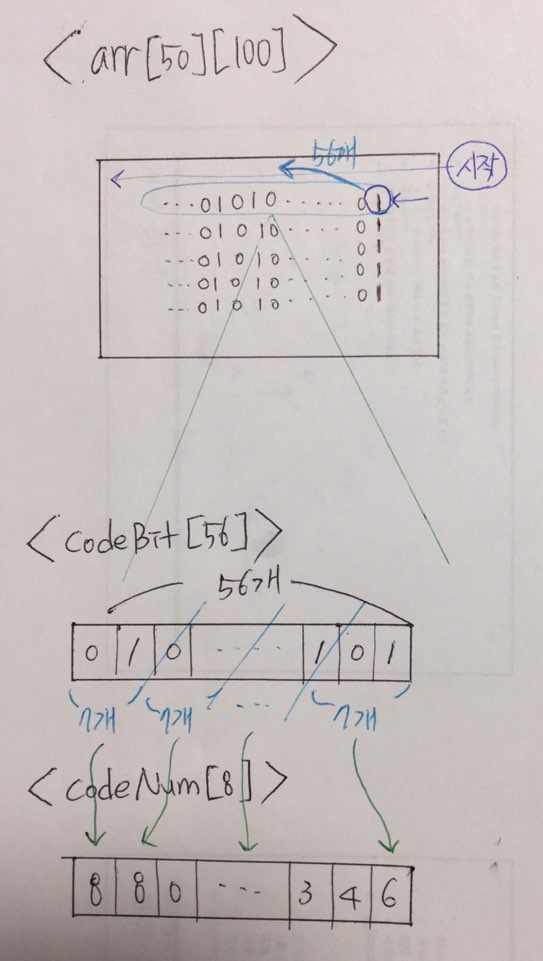 <arr[50][100]>
56개
시작
...01010......01
...01010...01
...01010...01
...01010...01
...01010...01
<codeBit[56]>
56개
0 1 0 .... 1 0 1
7개 7개 ... 7개
<codeNum[8]>
8 8 0 --- 3 4 6